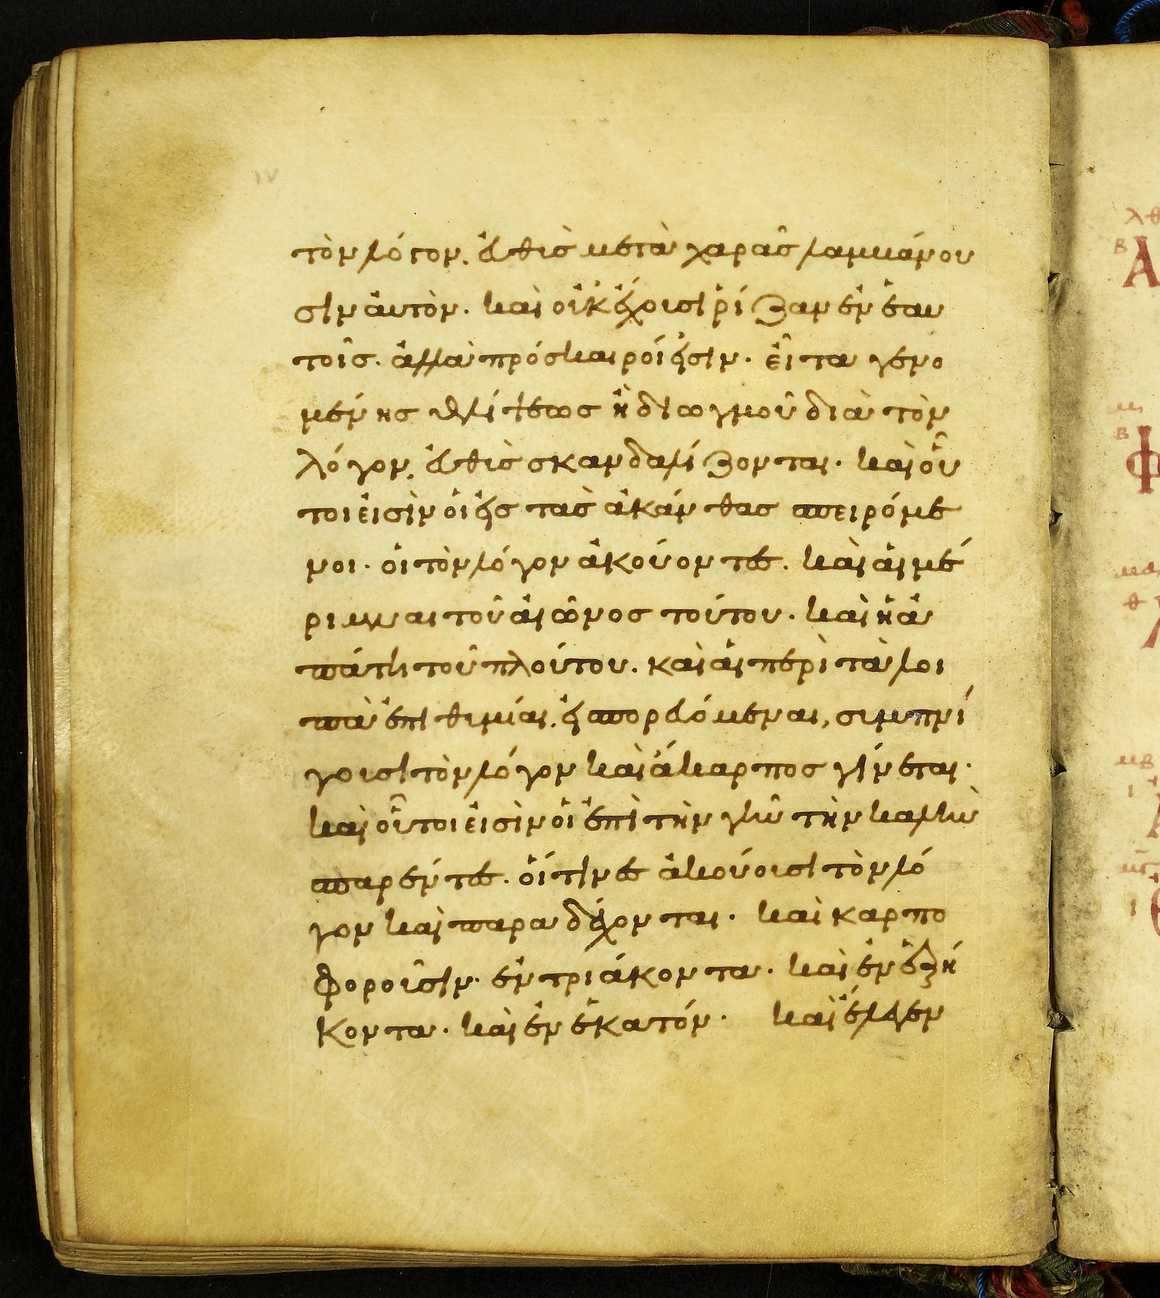 τὸν λόγον, εὐθὺς μετὰ χαρᾶς λαμβάνου
σιν αὐτὸν· καὶ οὐκ ἔχουσι ῥίζαν ἐν ἑαυ
τοῖς· ἀλλὰ πρόσκαιροί εἰσιν· εἶτα γενο
μένης θλίψεως ἢ διωγμοῦ διὰ τὸν
λόγον, εὐθὺς σκανδαλίζονται· καὶ οὗ
τοι εἰσὶν οἱ εἰς τὰς ἀκάνθας σπειρόμε
νοι· οἱ τὸν λόγον ἀκούοντες· καὶ αἱ μέ
ριμναι τοῦ αἰῶνος τούτου· καὶ ἡ ἀ
πάτη τοῦ πλούτου· καὶ αἱ περὶ τὰ λοι
πὰ ἐπιθυμίαι, εἰσπορευόμεναι, συμπνί
γουσι τὸν λόγον καὶ ἄκαρπος γίνεται·
καὶ οὗτοι εἰσὶν οἱ ἐπὶ τὴν γῆν τὴν καλὴν
σπαρέντες· οἵτινες ἀκούουσι τὸν λό
γον καὶ παραδέχονται· καὶ καρπο
φοροῦσιν· ἐν τριάκοντα· καὶ ἐν ἑξή
κοντα· καὶ ἐν ἑκατόν· καὶ ἔλεγεν